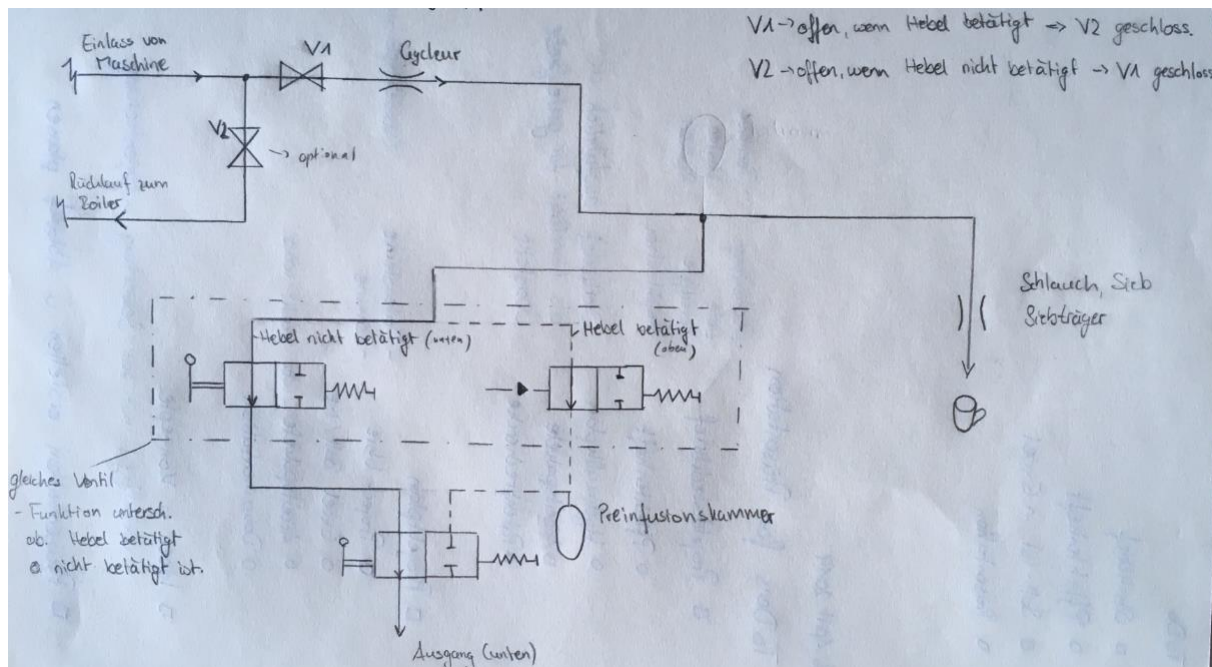 V1 → offen, wenn Hebel betätigt → V2 geschloss.
V2 → offen, wenn Hebel nicht betätigt → V1 geschloss
Einlass von
Maschine
V1
Gycleur
V2
→ optional
Rücklauf zum
Boiler
Hebel nicht betätigt (unten)
Hebel betätigt
(oben)
Schlauch, Sieb
Siebträger
gleiches Ventil
- Funktion untersch.
ob. Hebel betätigt
o nicht betätigt ist.
Preinfusionskammer
Ausgang (unten)